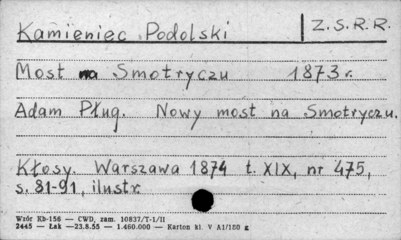 Kamieniec Podolski Z.S.R.R.
Most na Smotryczu 1873 r.
Adam Pług. Nowy most na Smotryczu.
Kłosy. Warszawa 1874 t. XIX, nr 475,
s. 81-91, ilustr.
Wzór Kb-156 — CWD, zam. 10837/T-1/II
2445 — Łak —23.8.55 — 1.460.000 — Karton kl. V A1/180 g